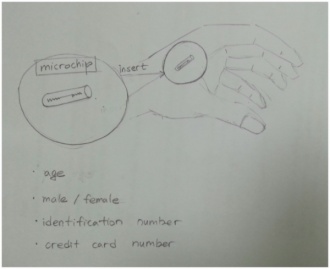 microchip
insert
· age
· male / female
· identification number
· credit card number